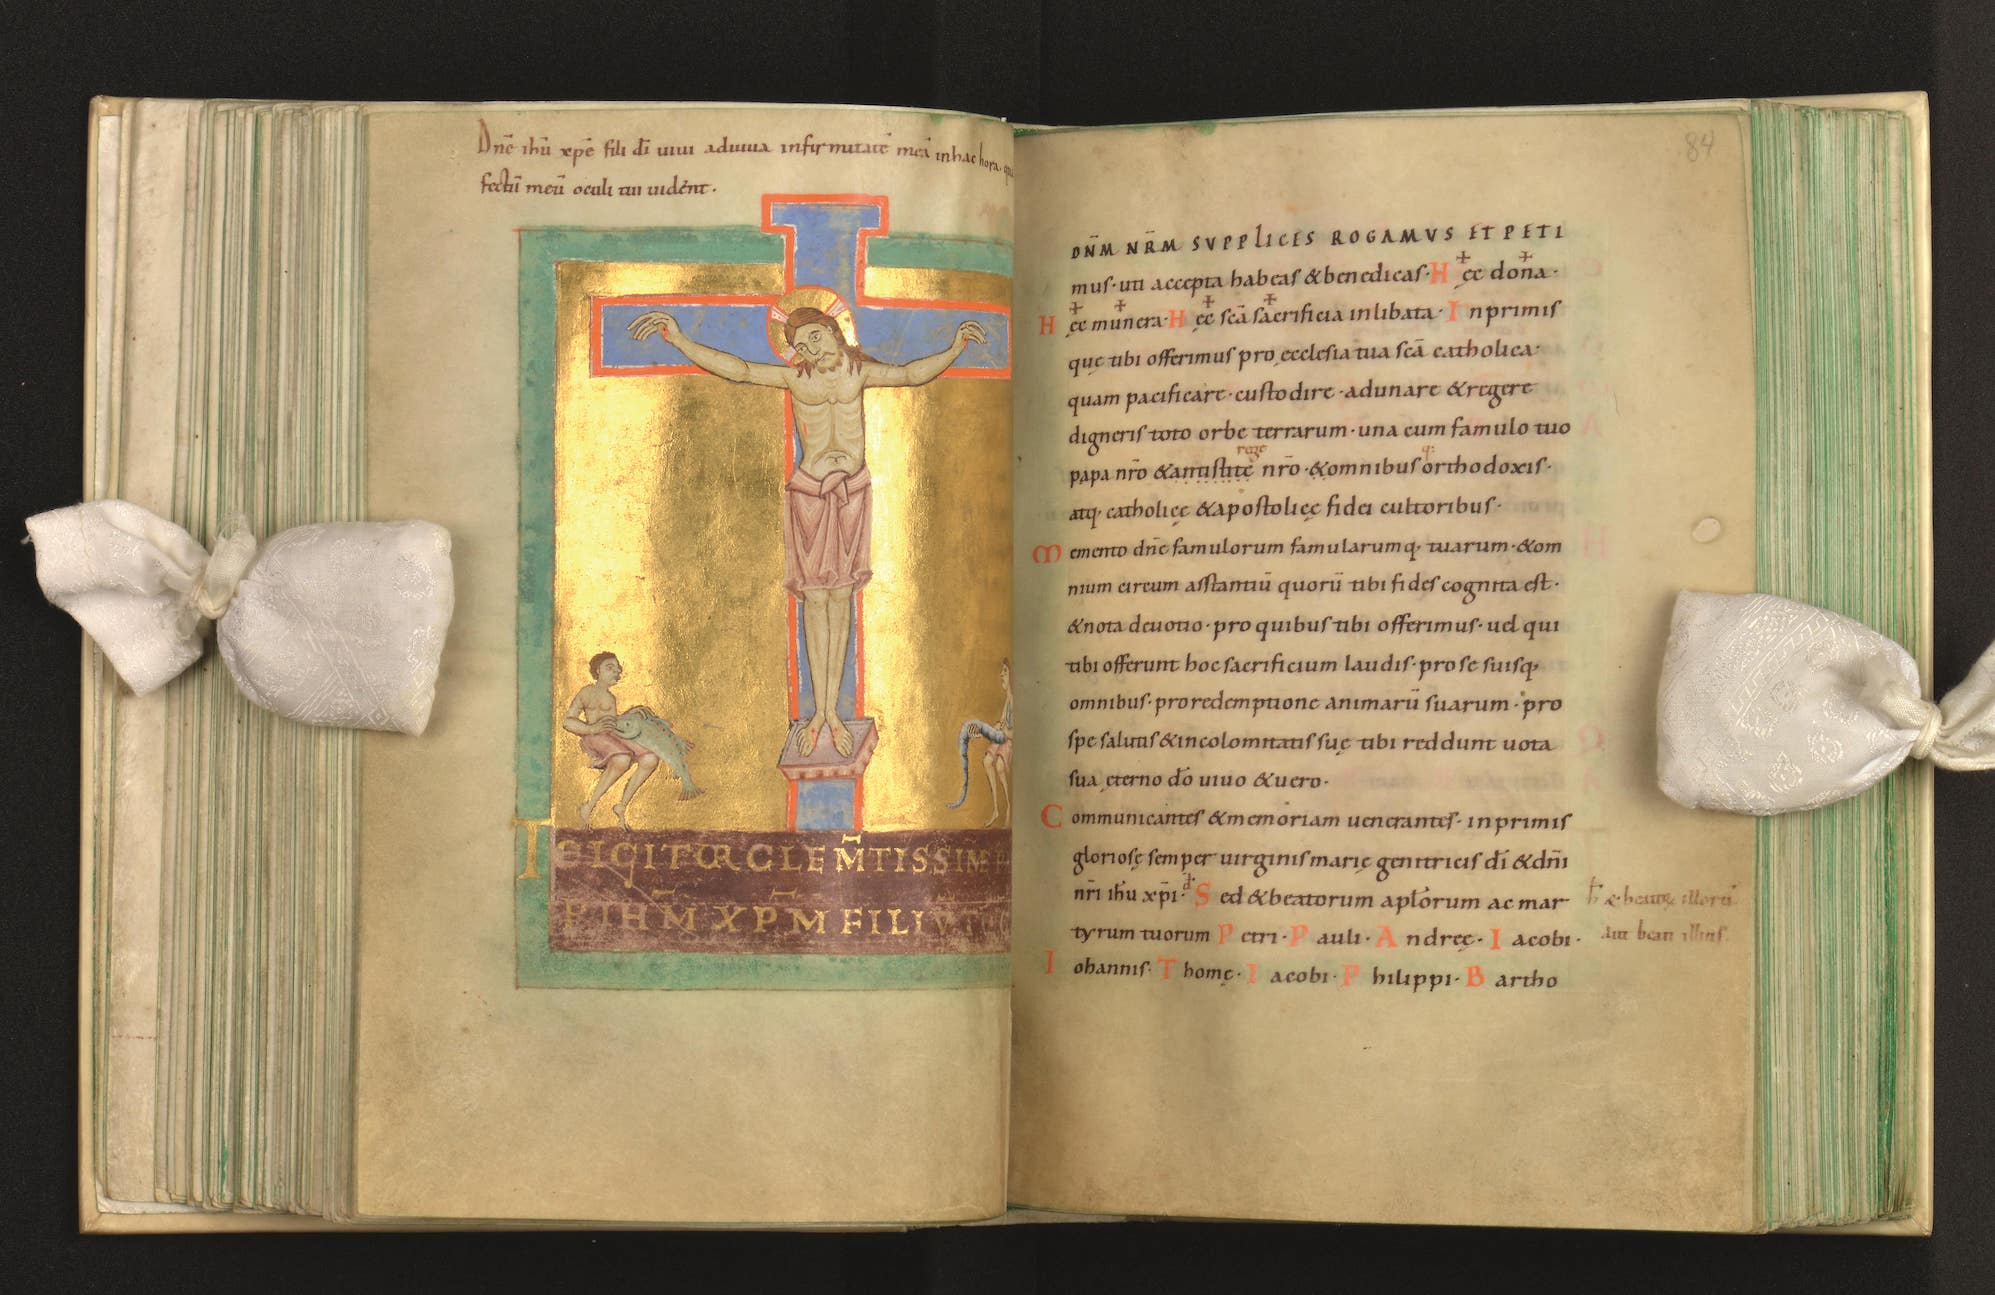 Dn̄e ihū xp̄e fili dī uiui adiuua infirmitatē meā in hac hora
fectū meū oculi tui uidēnt.
TE IGITUR CLEM̄TISSIME
P IHM̄ XPM FILIV̄
84
DN̄M NR̄M SVPPLICES ROGAMVS ET PETI
mus· uti accepta habeas & benedicas· Hęc dona·
Hęc munera· Hęc scā sacrificia inlibata· Inprimis
quę tibi offerimus pro ęcclesia tua scā catholica·
quam pacificare· custodire· adunare & regere
digneris toto orbe terrarum· una cum famulo tuo
rege
papa nr̄o & antistite nr̄o· & omnibus orthodoxis·
atq; catholicę & apostolicę fidei cultoribus·
Memento dn̄e famulorum famularumq; tuarum· & om
nium circum astantiū quorū tibi fides cognita est·
& nota deuotio· pro quibus tibi offerimus· uel qui
tibi offerunt hoc sacrificium laudis· pro se suisq;
omnibus· pro redemptione animarū suarum· pro
spe salutis & incolomitatis suę tibi reddunt uota
sua ęterno dō uiuo & uero·
Communicantes & memoriam uenerantes· inprimis
gloriosę semper uirginis marię genitricis dī & dn̄i
nr̄i ihū xp̄i· Sed & beatorum aplōrum ac mar
tyrum tuorum Petri· Pauli· Andreę· Iacobi·
Iohannis· Thomę· Iacobi· Philippi· Bartho